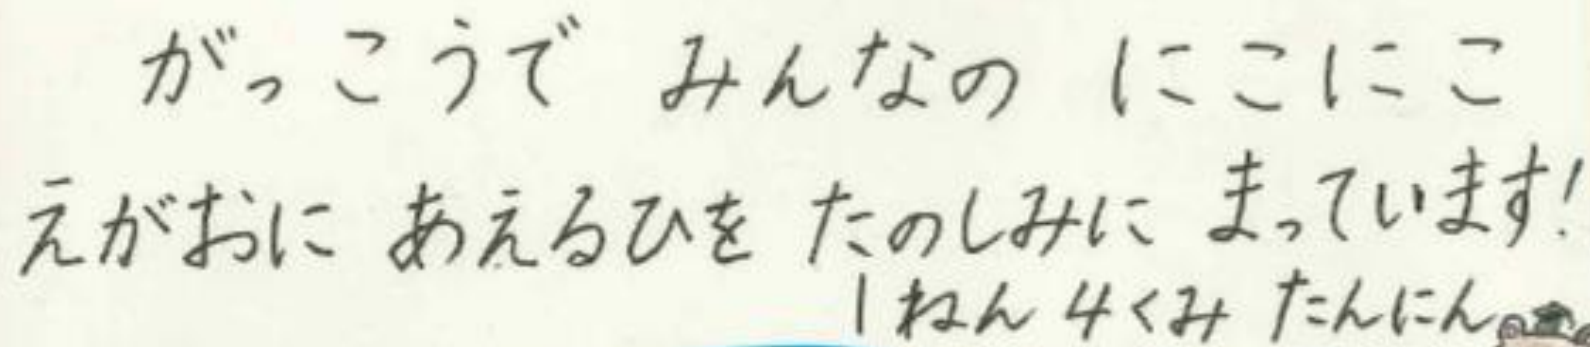 がっこうで みんなの にこにこ
えがおに あえるひを たのしみに まっています!
1ねん4くみ たんにん